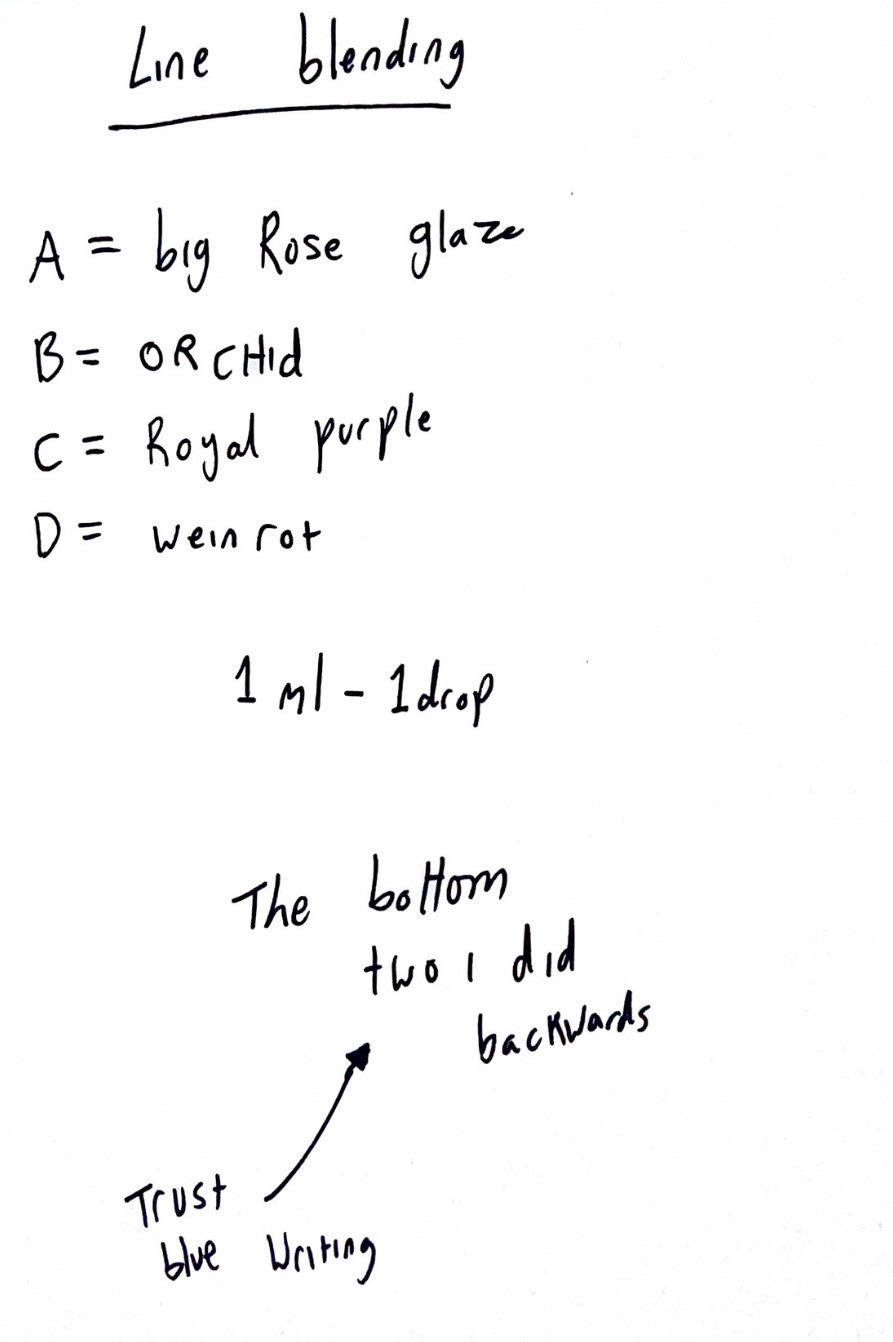 Line blending
A = big Rose glaze
B = ORCHid
C = Royal purple
D = wein rot
1 ml - 1 drop
The bottom
two i did
backwards
Trust
blue writing